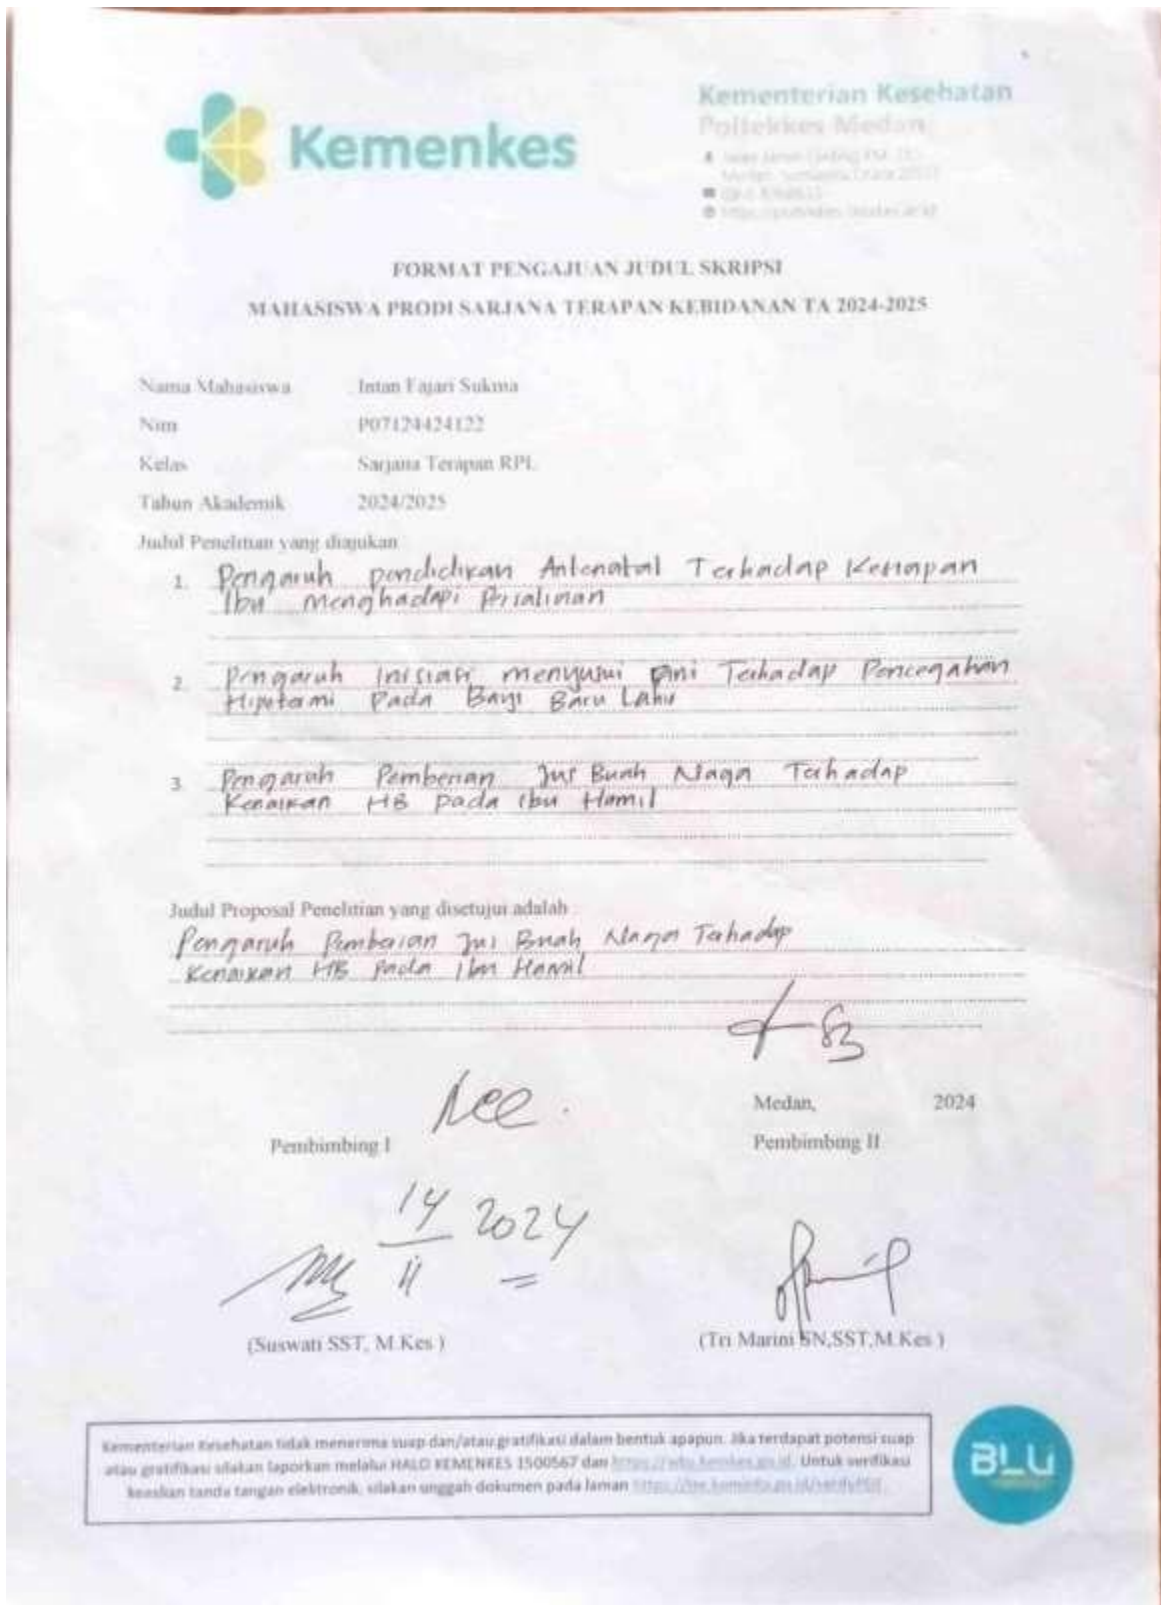 Kemenkes
Kementerian Kesehatan
Poltekkes Medan
FORMAT PENGAJUAN JUDUL SKRIPSI
MAHASISWA PRODI SARJANA TERAPAN KEBIDANAN TA 2024-2025
Nama Mahasiswa : Intan Fajari Sukma
Nim P07124424122
Kelas Sarjana Terapan RPL
Tahun Akademik 2024/2025
Judul Penelitian yang diajukan
1. Pengaruh pendidikan Antenatal Terhadap Kesiapan
Ibu menghadapi Persalinan
2. Pengaruh Inisiasi menyusui Dini Terhadap Pencegahan
Hipotermi Pada Bayi Baru Lahir
3. Pengaruh Pemberian Jus Buah Naga Terhadap
Kenaikan HB pada Ibu Hamil
Judul Proposal Penelitian yang disetujui adalah :
Pengaruh Pemberian Jus Buah Naga Terhadap
Kenaikan HB Pada Ibu Hamil
Acc.
Medan, 2024
Pembimbing I Pembimbing II
14/11 2024
(Suswati SST, M.Kes ) (Tri Marini SN,SST,M.Kes )
Kementerian Kesehatan tidak menerima suap dan/atau gratifikasi dalam bentuk apapun. Jika terdapat potensi suap
atau gratifikasi silakan laporkan melalui HALO KEMENKES 1500567 dan https://wbs.kemkes.go.id. Untuk verifikasi
keaslian tanda tangan elektronik, silakan unggah dokumen pada laman https://tte.kominfo.go.id/verifyPDF.
BLU